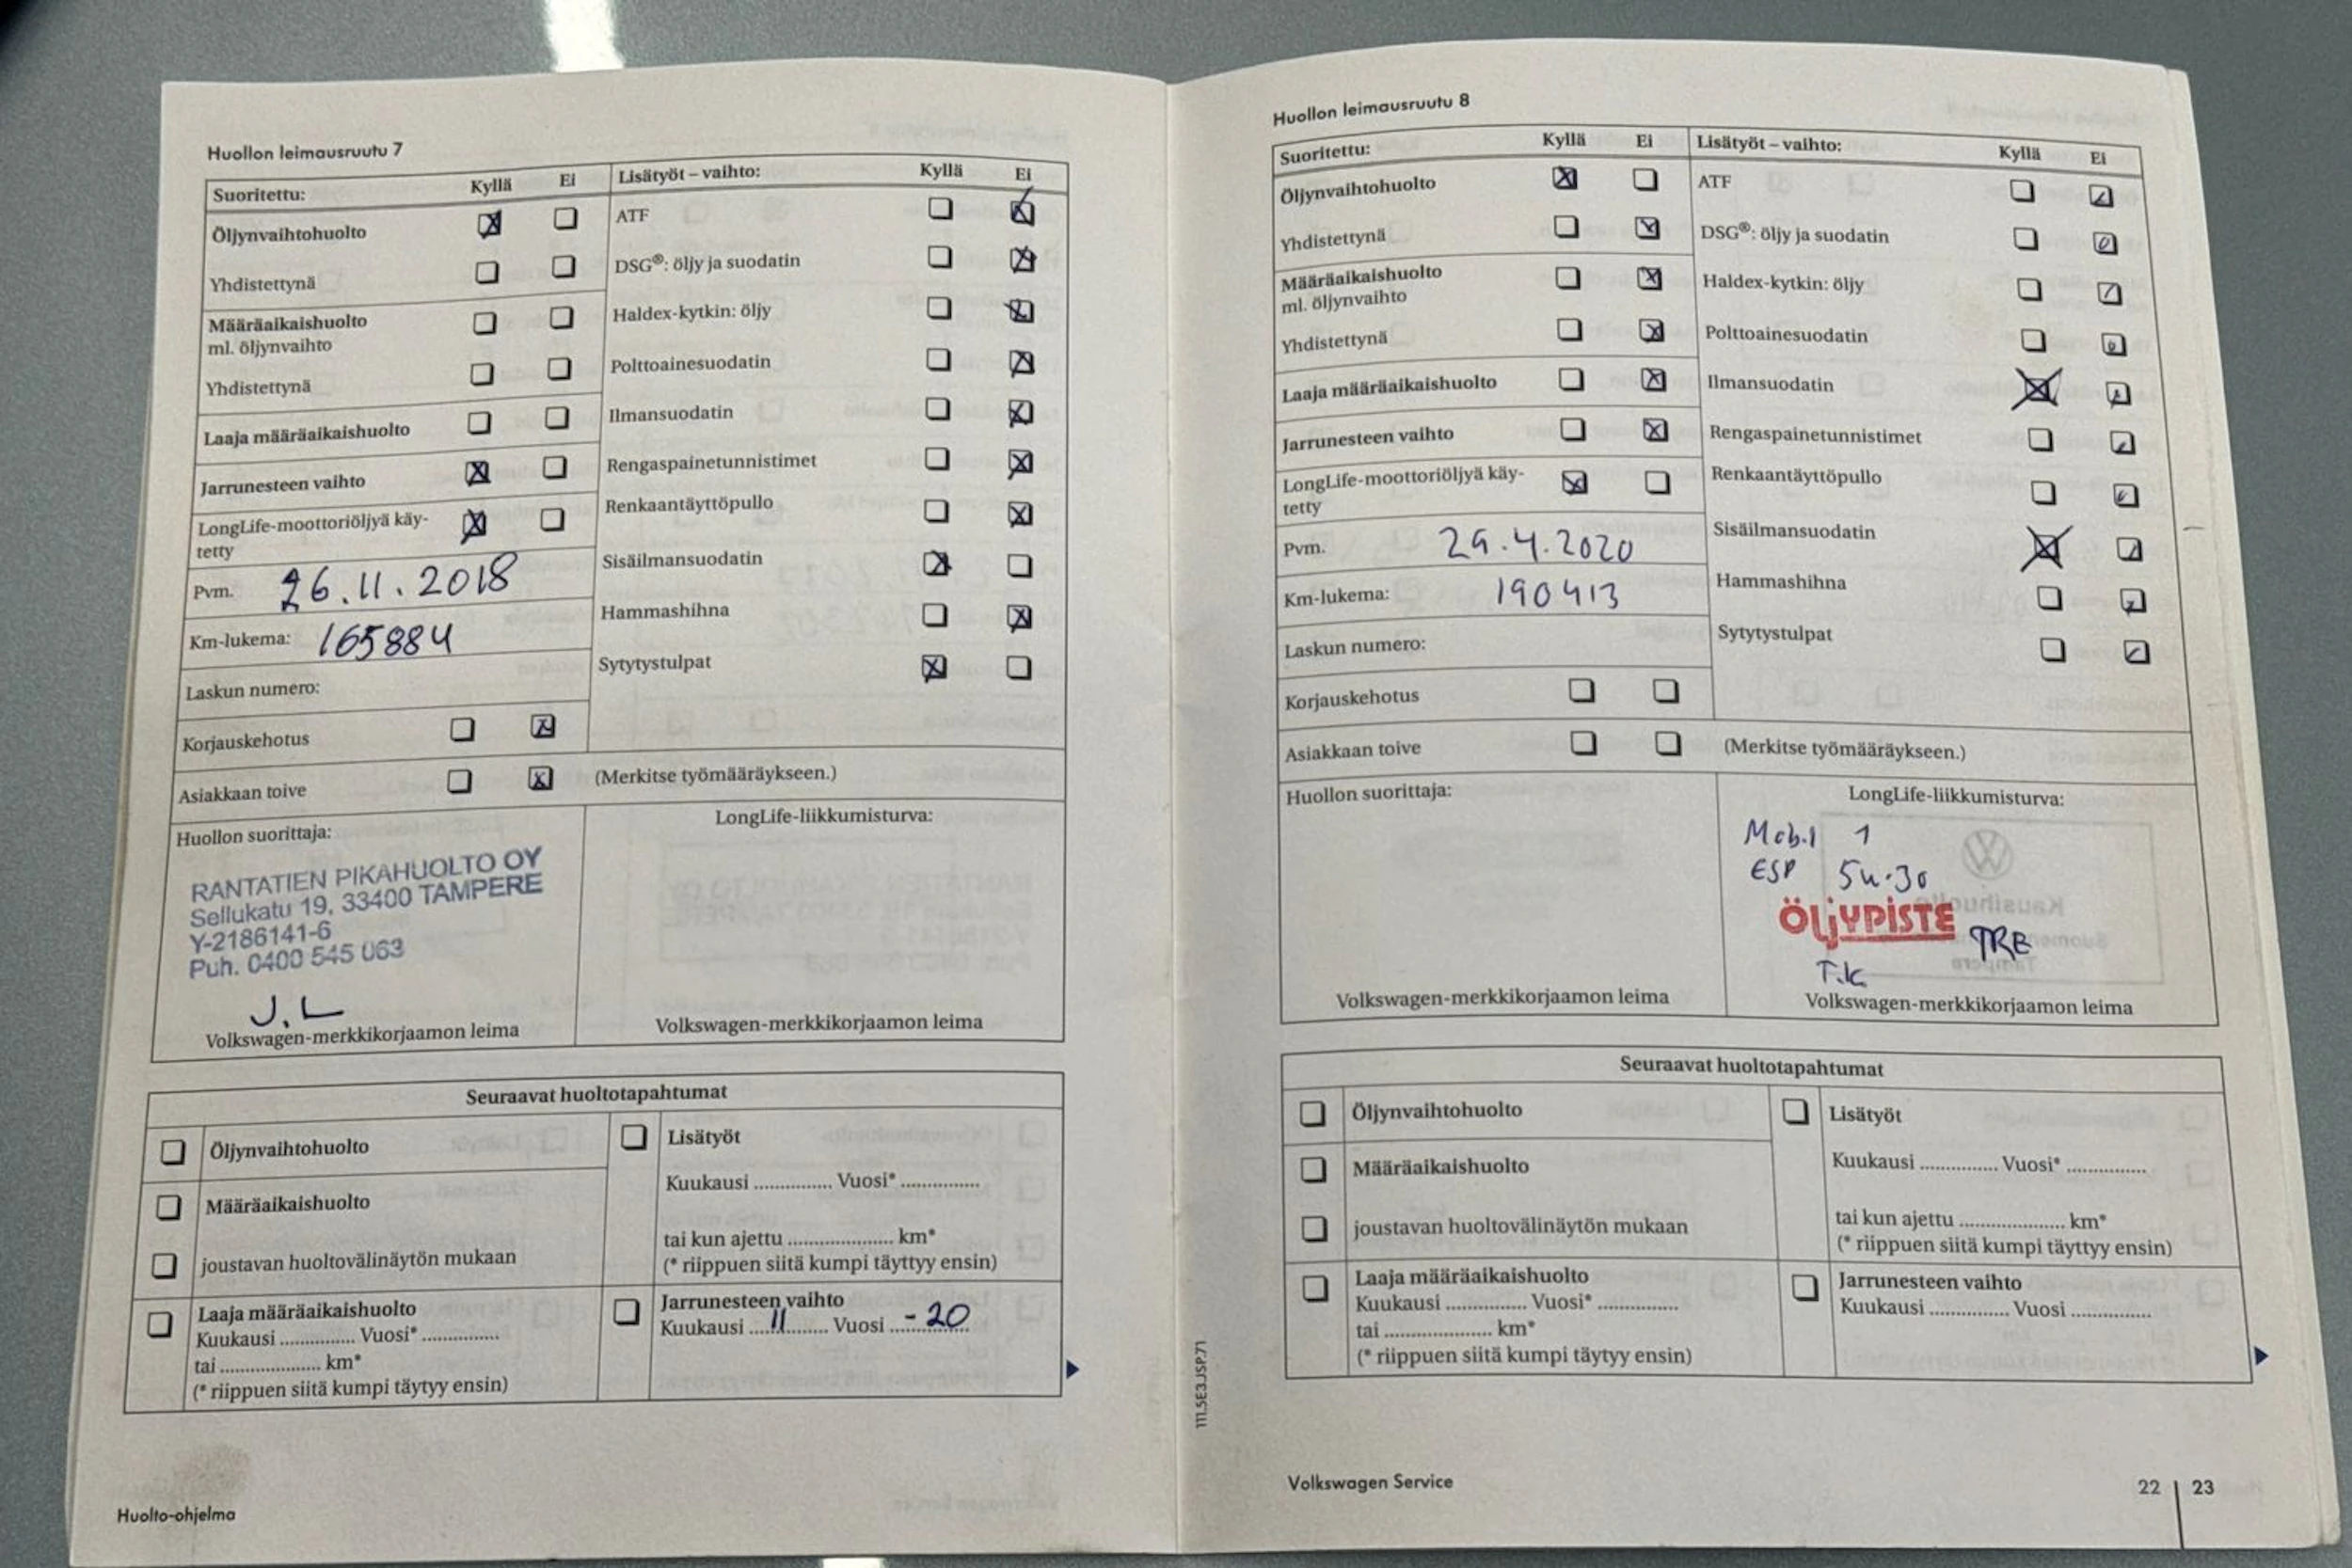 Huollon leimausruutu 7
Suoritettu: Kyllä Ei
Öljynvaihtohuolto
Yhdistettynä
Määräaikaishuolto
ml. öljynvaihto
Yhdistettynä
Laaja määräaikaishuolto
Jarrunesteen vaihto
LongLife-moottoriöljyä käy-
tetty
Pvm. 26.11.2018
Km-lukema: 165884
Laskun numero:
Korjauskehotus
Asiakkaan toive
Lisätyöt – vaihto: Kyllä Ei
ATF
DSG®: öljy ja suodatin
Haldex-kytkin: öljy
Polttoainesuodatin
Ilmansuodatin
Rengaspainetunnistimet
Renkaantäyttöpullo
Sisäilmansuodatin
Hammashihna
Sytytystulpat
(Merkitse työmääräykseen.)
Huollon suorittaja:
RANTATIEN PIKAHUOLTO OY
Sellukatu 19, 33400 TAMPERE
Y-2186141-6
Puh. 0400 545 063
J.L
Volkswagen-merkkikorjaamon leima
LongLife-liikkumisturva:
Volkswagen-merkkikorjaamon leima
Seuraavat huoltotapahtumat
Öljynvaihtohuolto
Määräaikaishuolto
joustavan huoltovälinäytön mukaan
Laaja määräaikaishuolto
Kuukausi .............. Vuosi* ..............
tai .................... km*
(* riippuen siitä kumpi täytyy ensin)
Lisätyöt
Kuukausi .............. Vuosi* ..............
tai kun ajettu .................... km*
(* riippuen siitä kumpi täyttyy ensin)
Jarrunesteen vaihto
Kuukausi 11 Vuosi -20
Huolto-ohjelma
Huollon leimausruutu 8
Suoritettu: Kyllä Ei
Öljynvaihtohuolto
Yhdistettynä
Määräaikaishuolto
ml. öljynvaihto
Yhdistettynä
Laaja määräaikaishuolto
Jarrunesteen vaihto
LongLife-moottoriöljyä käy-
tetty
Pvm. 29.4.2020
Km-lukema: 190413
Laskun numero:
Korjauskehotus
Asiakkaan toive
Lisätyöt – vaihto: Kyllä Ei
ATF
DSG®: öljy ja suodatin
Haldex-kytkin: öljy
Polttoainesuodatin
Ilmansuodatin
Rengaspainetunnistimet
Renkaantäyttöpullo
Sisäilmansuodatin
Hammashihna
Sytytystulpat
(Merkitse työmääräykseen.)
Huollon suorittaja:
Volkswagen-merkkikorjaamon leima
LongLife-liikkumisturva:
Mobil 1
ESP 5w-30
ÖLjYPiSTE TRE
T.K
Volkswagen-merkkikorjaamon leima
Seuraavat huoltotapahtumat
Öljynvaihtohuolto
Määräaikaishuolto
joustavan huoltovälinäytön mukaan
Laaja määräaikaishuolto
Kuukausi .............. Vuosi* ..............
tai .................... km*
(* riippuen siitä kumpi täytyy ensin)
Lisätyöt
Kuukausi .............. Vuosi* ..............
tai kun ajettu .................... km*
(* riippuen siitä kumpi täyttyy ensin)
Jarrunesteen vaihto
Kuukausi .............. Vuosi ..............
111.5E3.JSP.71
Volkswagen Service
22 | 23